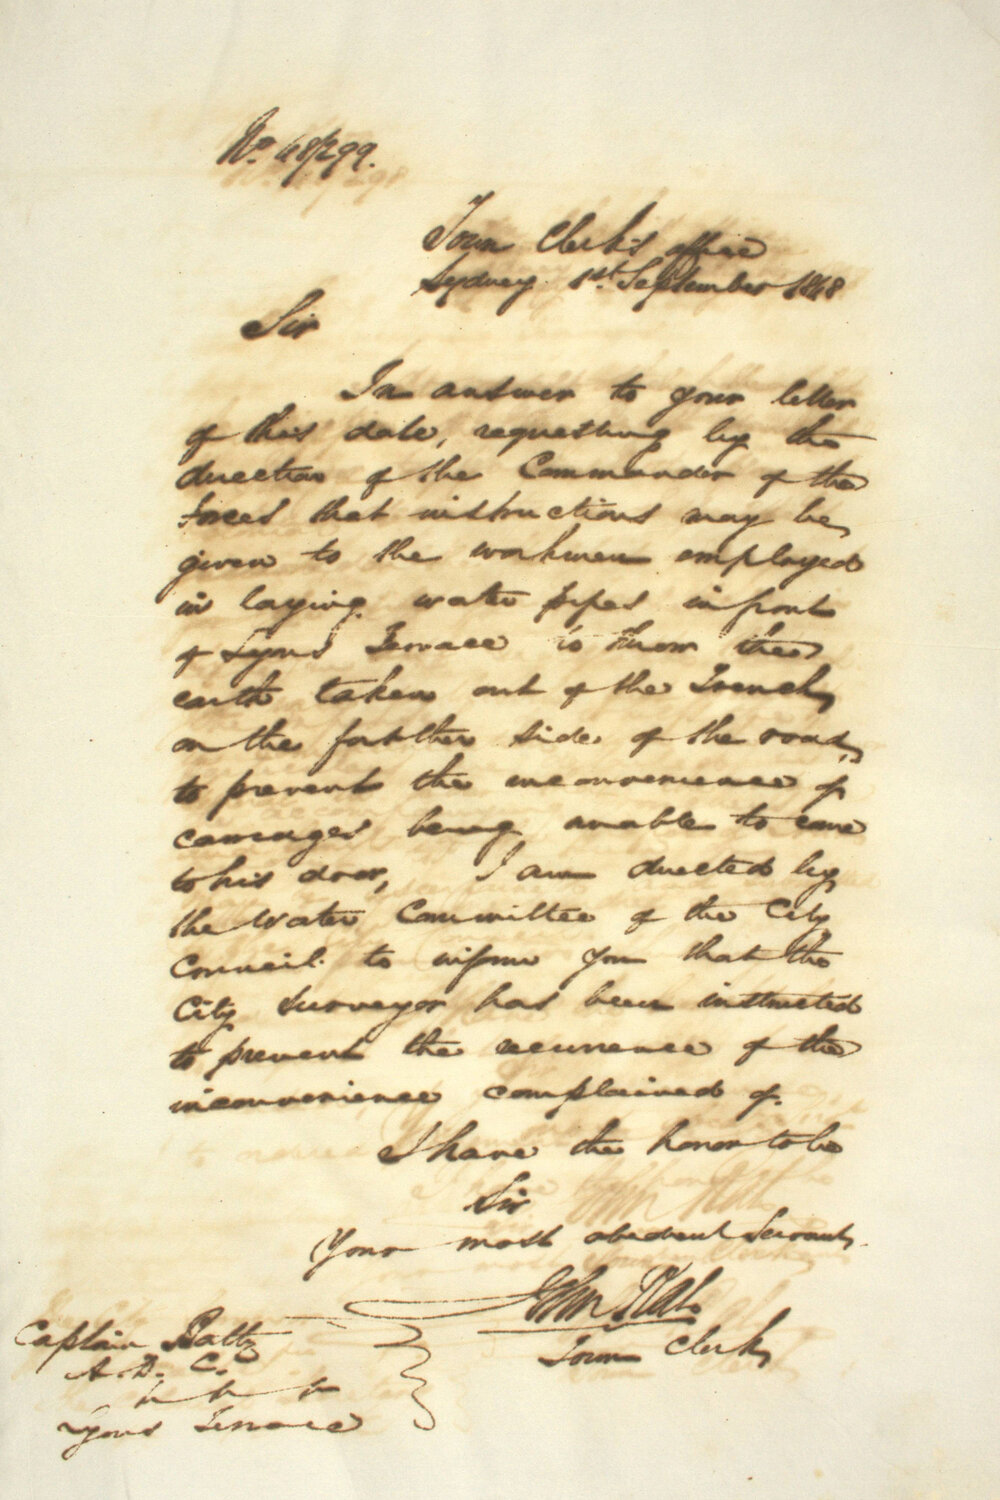 No. 48/299.
Town Clerk's office
Sydney 1st September 1848
Sir
In answer to your letter
of this date, requesting by the
direction of the Commander of the
Forces that instructions may be
given to the workmen employed
in laying water pipes in front
of Lyons Terrace to throw the
earth taken out of the Trench
on the further side of the road,
to prevent the inconvenience of
carriages being unable to come
to his door, I am directed by
the Water Committee of the City
Council to inform you that the
City Surveyor has been instructed
to prevent the recurrence of the
inconvenience complained of.
I have the honor to be
Sir
Your most obedient Servant,
John
Town Clerk
Captain Batty
A. D. C.
Lyons Terrace